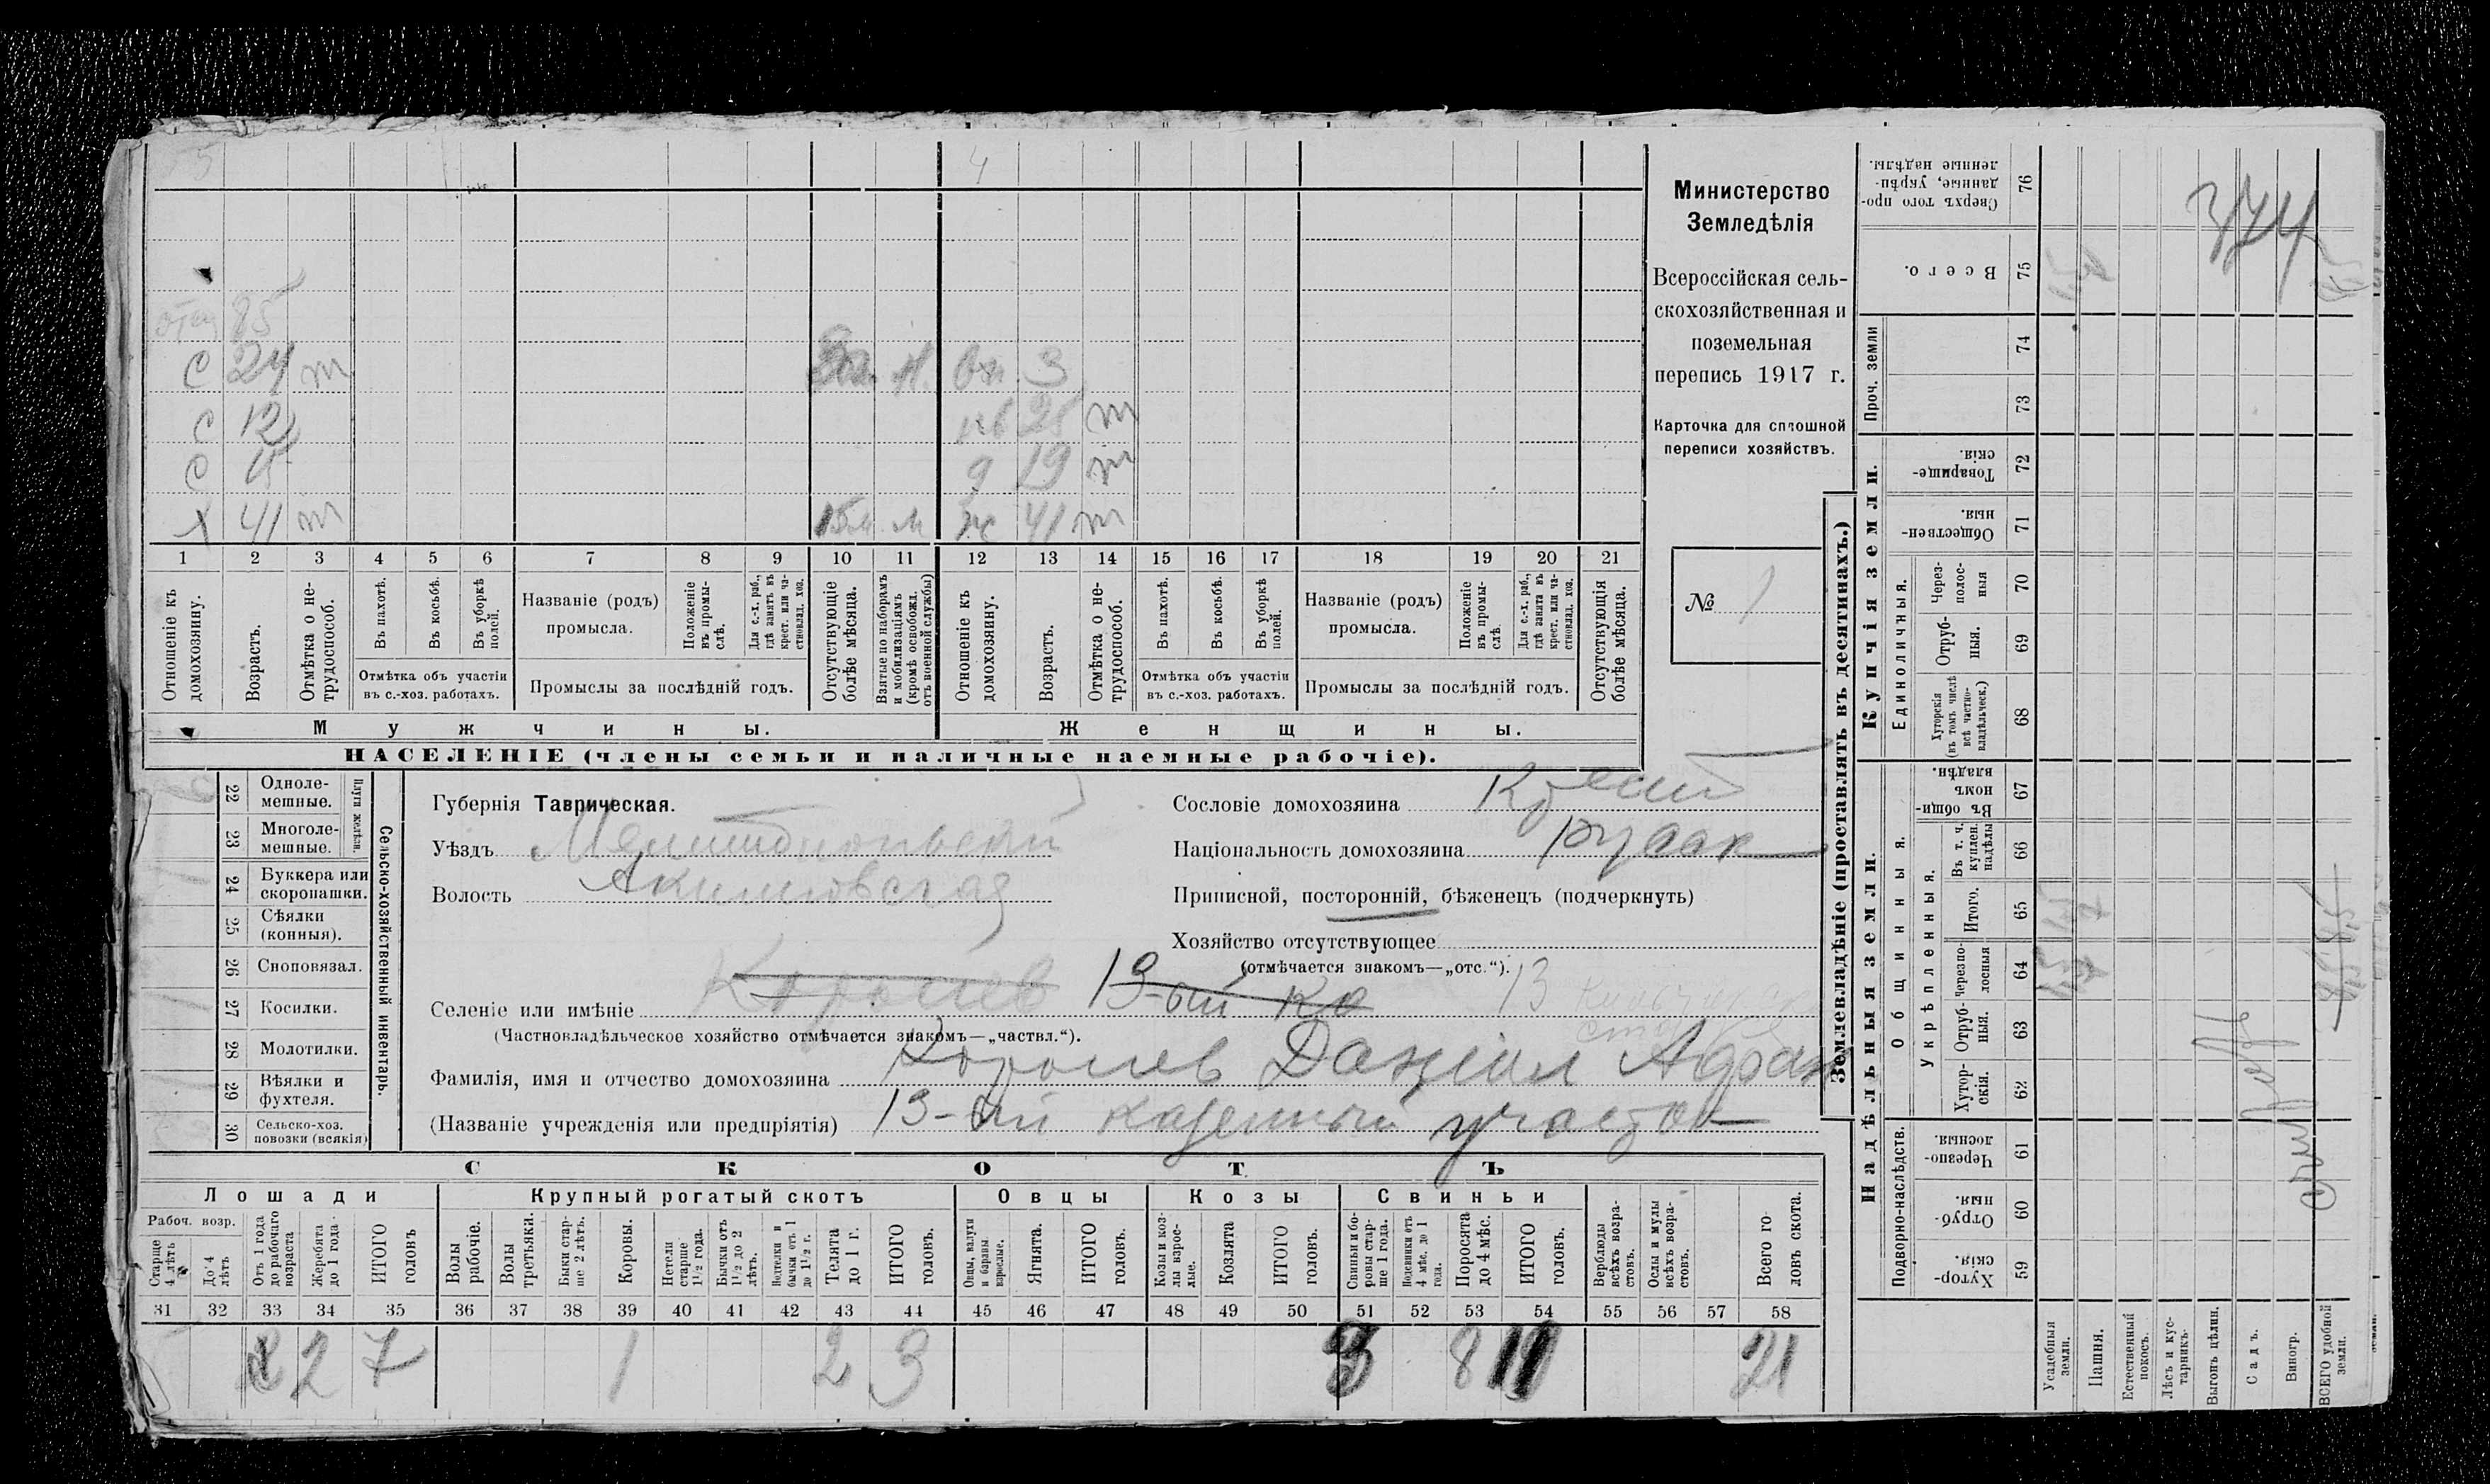 5 4
отец 85
С 24 т 3 г. м. вн 3
С 12 нев 25 т
С 6 д 19 т
Х 41 т 15 м. м ж 41 т
1 2 3 4 5 6 7 8 9 10 11 12 13 14 15 16 17 18 19 20 21
Отношеніе къ домохозяину.
Возрастъ.
Отмѣтка о нетрудоспособ.
Въ пахотѣ.
Въ косьбѣ.
Въ уборкѣ полей.
Отмѣтка объ участіи въ с.-хоз. работахъ.
Названіе (родъ) промысла.
Положеніе въ промыслѣ.
Для с.-х. раб., гдѣ занятъ въ крест. или частновлад. хоз.
Промыслы за послѣдній годъ.
Отсутствующіе болѣе мѣсяца.
Взятые по наборамъ и мобилизаціямъ (кромѣ освобожд. отъ военной службы)
Отношеніе къ домохозяину.
Возрастъ.
Отмѣтка о нетрудоспособ.
Въ пахотѣ.
Въ косьбѣ.
Въ уборкѣ полей.
Отмѣтка объ участіи въ с.-хоз. работахъ.
Названіе (родъ) промысла.
Положеніе въ промыслѣ.
Для с.-х. раб., гдѣ занята въ крест. или частновлад. хоз.
Промыслы за послѣдній годъ.
Отсутствующія болѣе мѣсяца.
Мужчины. Женщины.
НАСЕЛЕНІЕ (члены семьи и наличные наемные рабочіе).
Министерство
Земледѣлія
Всероссійская сель-
скохозяйственная и
поземельная
перепись 1917 г.
Карточка для сплошной
переписи хозяйствъ.
№ 1
22 Одноле-
мешные.
23 Многоле-
мешные.
Плуги желѣзн.
24 Буккера или
скоропашки.
25 Сѣялки
(конныя).
26 Сноповязал.
27 Косилки.
28 Молотилки.
29 Вѣялки и
фухтеля.
30 Сельско-хоз.
повозки (всякія)
Сельско-хозяйственный инвентарь.
Губернія Таврическая.
Уѣздъ Мелитопольскій
Волость Акимовская
Сословіе домохозяина Крест
Національность домохозяина русак
Приписной, посторонній, бѣженецъ (подчеркнуть)
Хозяйство отсутствующее
(отмѣчается знакомъ—„отс.“).
Селеніе или имѣніе Королев 13-ый ка 13
(Частновладѣльческое хозяйство отмѣчается знакомъ—„частвл.“).
Фамилія, имя и отчество домохозяина Королев Даніил Афан
(Названіе учрежденія или предпріятія) 13-ый казенный участок
СКОТЪ
Лошади Крупный рогатый скотъ Овцы Козы Свиньи
Рабоч. возр.
Старше 4 лѣтъ
До 4 лѣтъ
Отъ 1 года до рабочаго возраста
Жеребята до 1 года
ИТОГО головъ
Волы рабочіе.
Волы третьяки.
Быки старше 2 лѣтъ.
Коровы.
Нетели старше 1½ года.
Бычки отъ 1½ до 2 лѣтъ.
Подтелки и бычки отъ 1 до 1½ г.
Телята до 1 г.
ИТОГО головъ.
Овцы, валухи и бараны взрослые.
Ягнята.
ИТОГО головъ.
Козы и козлы взрослые.
Козлята
ИТОГО головъ.
Свиньи и боровы старше 1 года.
Подсвинки отъ 4 мѣс. до 1 года.
Поросята до 4 мѣс.
ИТОГО головъ.
Верблюды всѣхъ возрастовъ.
Ослы и мулы всѣхъ возрастовъ.
Всего головъ скота.
31 32 33 34 35 36 37 38 39 40 41 42 43 44 45 46 47 48 49 50 51 52 53 54 55 56 57 58
2 7 1 2 3 3 8 11 21
Землевладѣніе (проставлять въ десятинахъ.)
Надѣльныя земли. Купчія земли.
Проч. земли
Подворно-наслѣдств.
Общинныя.
Укрѣпленныя.
Единоличныя.
Сверхъ того проданные, укрѣпленные надѣлы. 76
Всего. 75
74
73
Товарищескія. 72
Общественныя. 71
Черезполосныя 70
Отрубныя. 69
Хуторскія (въ томъ числѣ всѣ частновладѣльческ.) 68
Въ общинномъ владѣн. 67
Въ т. ч. куплен. надѣлы 66
Итого. 65
Черезполосныя 64
Отрубныя. 63
Хуторскія. 62
Черезполосныя. 61
Отрубныя. 60
Хуторскія 59
Усадебныя земли.
Пашня.
Естественный покосъ.
Лѣсъ и кустарникъ.
Выгонъ цѣлин.
Садъ.
Виногр.
ВСЕГО удобной земли.
374